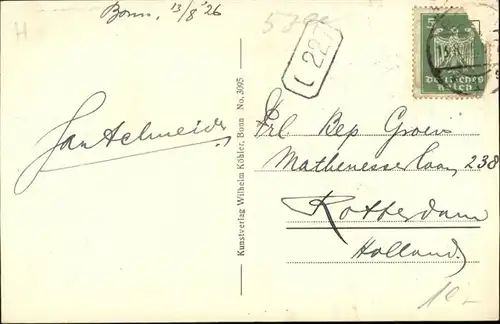 Bonn, 13/8 '26
H
L 22
5
Deutsches
Reich
Jan Schneider
Kunstverlag Wilhelm Köhler, Bonn No. 3095
Frl Bep Groen
Mathenesserlaan 238
Rotterdam
Holland.
10-